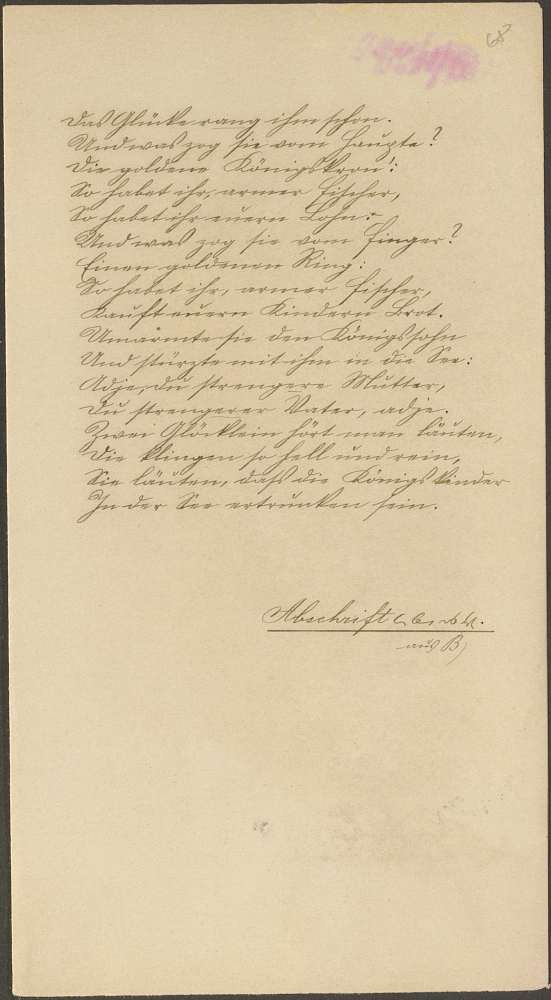 68
Das Glücke rang ihm schon.
Und was zog sie vom Haupte?
Die goldene Königskron':
So habet ihr, armer Fischer,
So habet ihr euern Lohn.
Und was zog sie vom Finger?
Einen goldenen Ring:
So habet ihr, armer Fischer,
Kauft euern Kindern Brot.
Umarmte sie den Königssohn
Und stürzte mit ihm in die See:
Adje, du strengere Mutter,
Du strengerer Vater, adje.
Zwei Glöcklein hört man läuten,
Die klingen so hell und rein,
Sie läuten, daß die Königskinder
In der See ertrunken sein.
Abschrift
aus B)